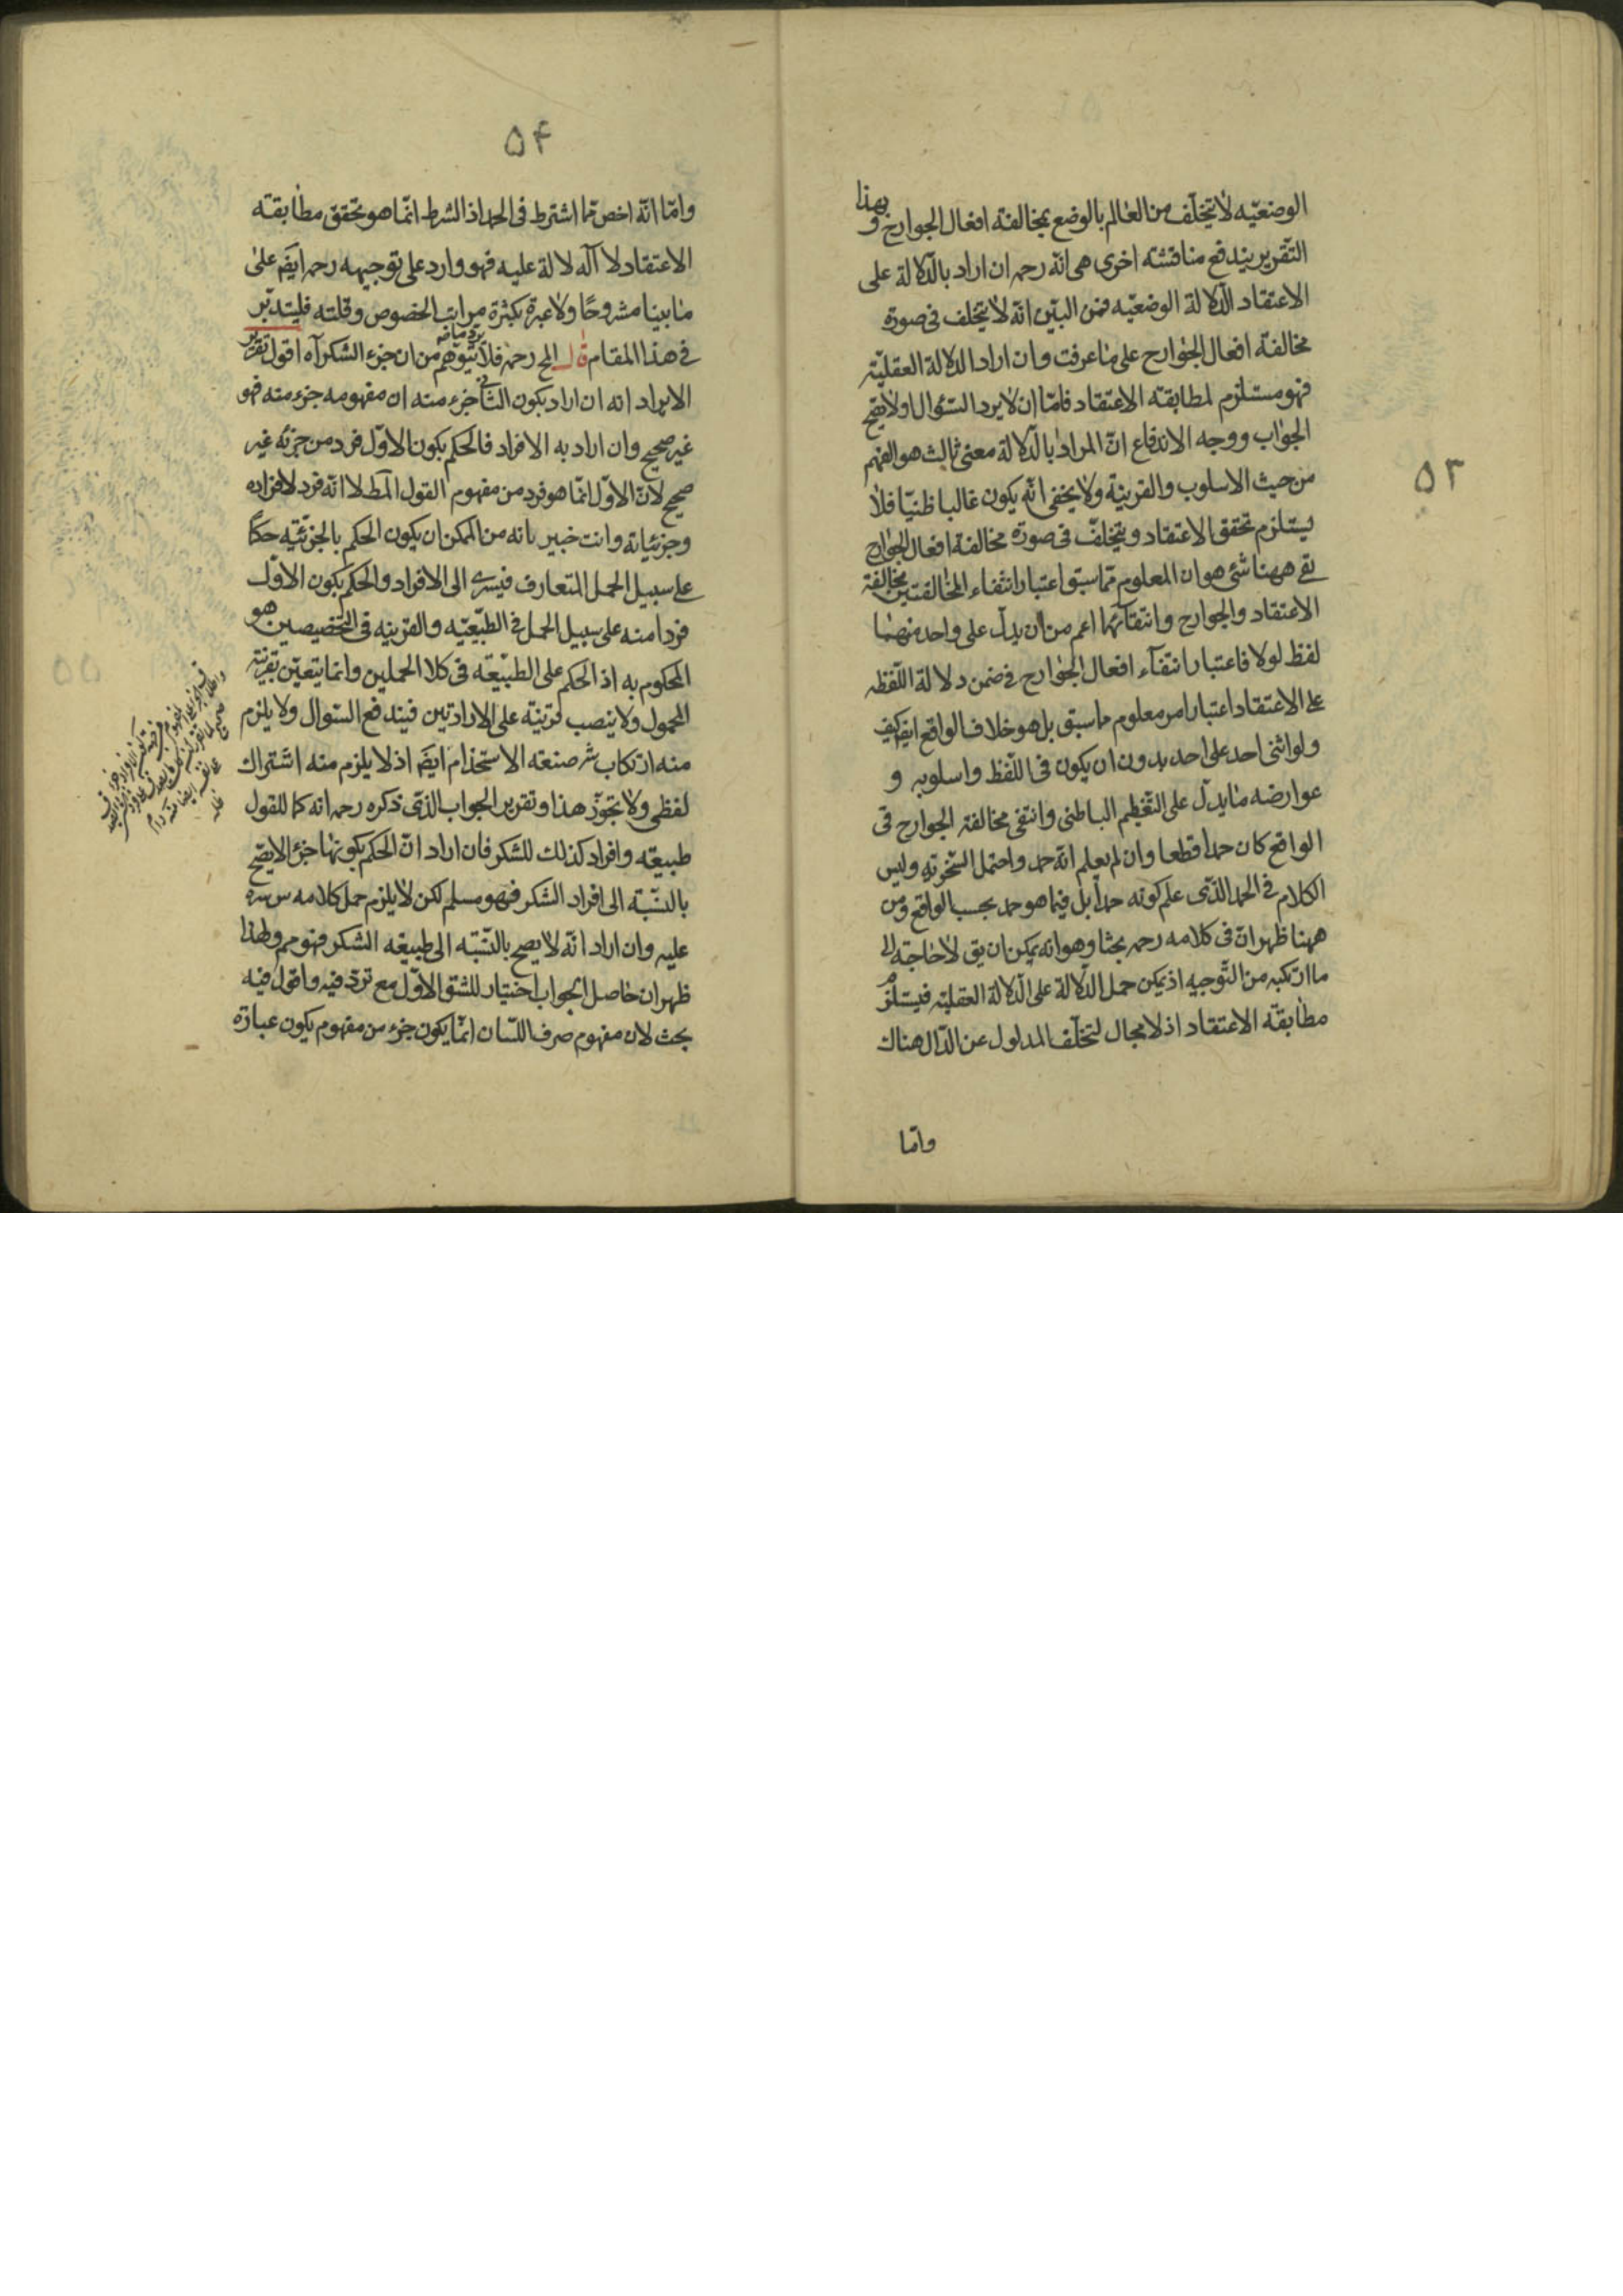 ۵۳
الوضعیّه لا یتخلّف من العالم بالوضع بمخالفة افعال الجوارح و بهذا
التّقریر یندفع مناقشة اخری هی انّه رحمه ان اراد بالدّلالة علی
الاعتقاد الدّلالة الوضعیّه فمن البیّن انّه لا یتخلف فی صورة
مخالفة افعال الجوارح علی ما عرفت و ان اراد الدلالة العقلیّة
فهو مستلزم لمطابقة الاعتقاد فامّا ان لا یرد السّؤال او لا یصح
الجواب و وجه الاندفاع انّ المراد بالدّلالة معنی ثالث هو الفهم
من حیث الاسلوب والقرینة ولا یخفی انّه یکون غالبا ظنیّا فلا
یستلزم تحقق الاعتقاد و یتخلّف فی صورة مخالفة افعال الجوارح
بقی ههنا شئ هو ان المعلوم ممّا سبق اعتبار انتفاء المخالفتین مخالفة
الاعتقاد والجوارح وانتفائهما اعم من ان یدلّ علی واحد منهما
لفظ لولا فاعتبار انتفآء افعال الجوارح فی ضمن دلالة اللّفظ
علی الاعتقاد اعتبار امر معلوم ما سبق بل هو خلاف الواقع ایضا کیف
ولو اثنی احد علی احد بدون ان یکون فی اللّفظ واسلوبه و
عوارضه ما یدلّ علی التّعظیم الباطنی وانتفی مخالفة الجوارح فی
الواقع کان حمدا قطعا وان لم یعلم انّه حمد واحتمل السّخریّة ولیس
الکلام فی الحمد الّذی علم کونه حمداً بل فیما هو حمد بحسب الواقع ومن
ههنا ظهر انّ فی کلامه رحمه بحثا وهو انه یمکن ان یق لا حاجة الی
ما ارتکبه من التّوجیه اذ یمکن حمل الدّلالة علی الدّلالة العقلیّة فیستلزم
مطابقة الاعتقاد اذ لا مجال لتخلّف المدلول عن الدّال هناک
وامّا
۵۴
وامّا انّه اخص ممّا اشترط فی الحمد اذ الشرط انّما هو تحقق مطابقة
الاعتقاد لا الدلالة علیه فهو وارد علی توجیهه رحمه ایضا علی
ما بینا مشروحًا ولا عبرة بکثرة مراتب الخصوص وقلته فلیتدبّر
فی هذا المقام قال المح رحمه فلا یتوهم من ان جزء الشکر آه اقول تقریر
الایراد انه ان اراد بکون الثانی جزء منه ان مفهومه جزء منه فهو
غیر صحیح وان اراد به الافراد فالحکم بکون الاوّل فرد من جزئه غیر
صحیح لانّ الاوّل انّما هو فرد من مفهوم القول المط لا انّه فرد لافراده
وجزئیاته وانت خبیر بانه من الممکن ان یکون الحکم بالجزئیّه حکمًا
علی سبیل الحمل المتعارف فیسری الی الافراد والحکم بکون الاوّل
فردا منه علی سبیل الحمل فی الطبیعیّه والقرینه فی التخصیصین هو
المحکوم به اذ الحکم علی الطّبیعة فی کلا الحملین وانما یتعیّن بقرینة
المحمول ولا ینصب قرینة علی الارادتین فیندفع السّوال ولا یلزم
منه ارتکاب شر صنعة الاستخدام ایضا اذ لا یلزم منه اشتراک
لفظی ولا تجوّز هذا و تقریر الجواب الذی ذکره رحمه انه کما للقول
طبیعة وافراد کذلک للشکر فان اراد انّ الحکم بکونها جزء الا یصح
بالنّسبة الی افراد الشکر فهو مسلم لکن لا یلزم حمل کلامه س سره
علیه وان اراد انّه لا یصح بالنّسبة الی طبیعة الشکر فهو مم ولهذا
ظهر ان حاصل الجواب اختیار للشق الاوّل مع تردّ فیه واقول فیه
بحث لان مفهوم صرف اللّسان انّما یکون جزء من مفهوم یکون عبارة